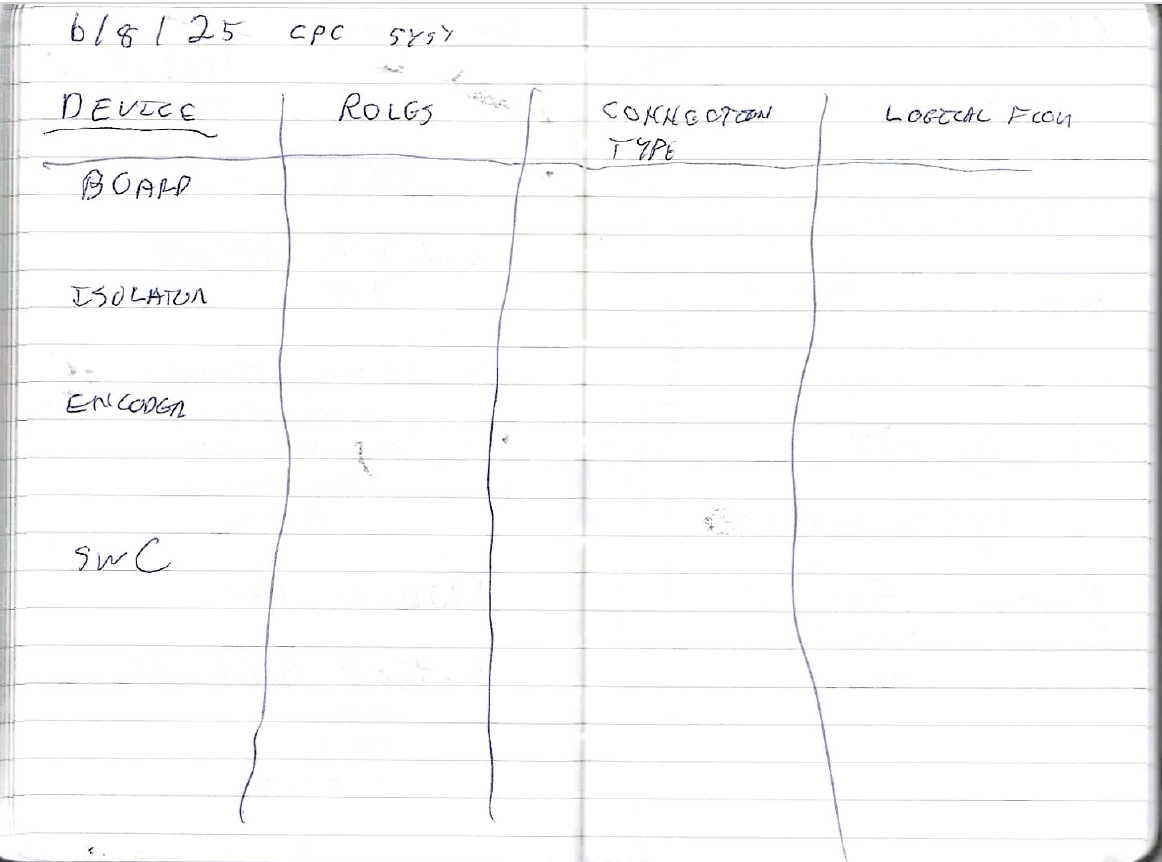 6/8/25 CPC SYSY
DEVICE ROLES CONNECTION TYPE LOGICAL FLOW
BOARD
ISOLATOR
ENCODER
SWC